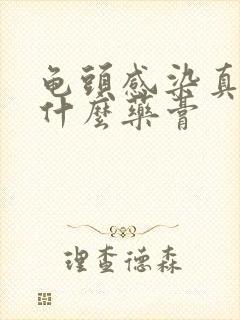 龟頭感染真
什麼藥膏
理查德森